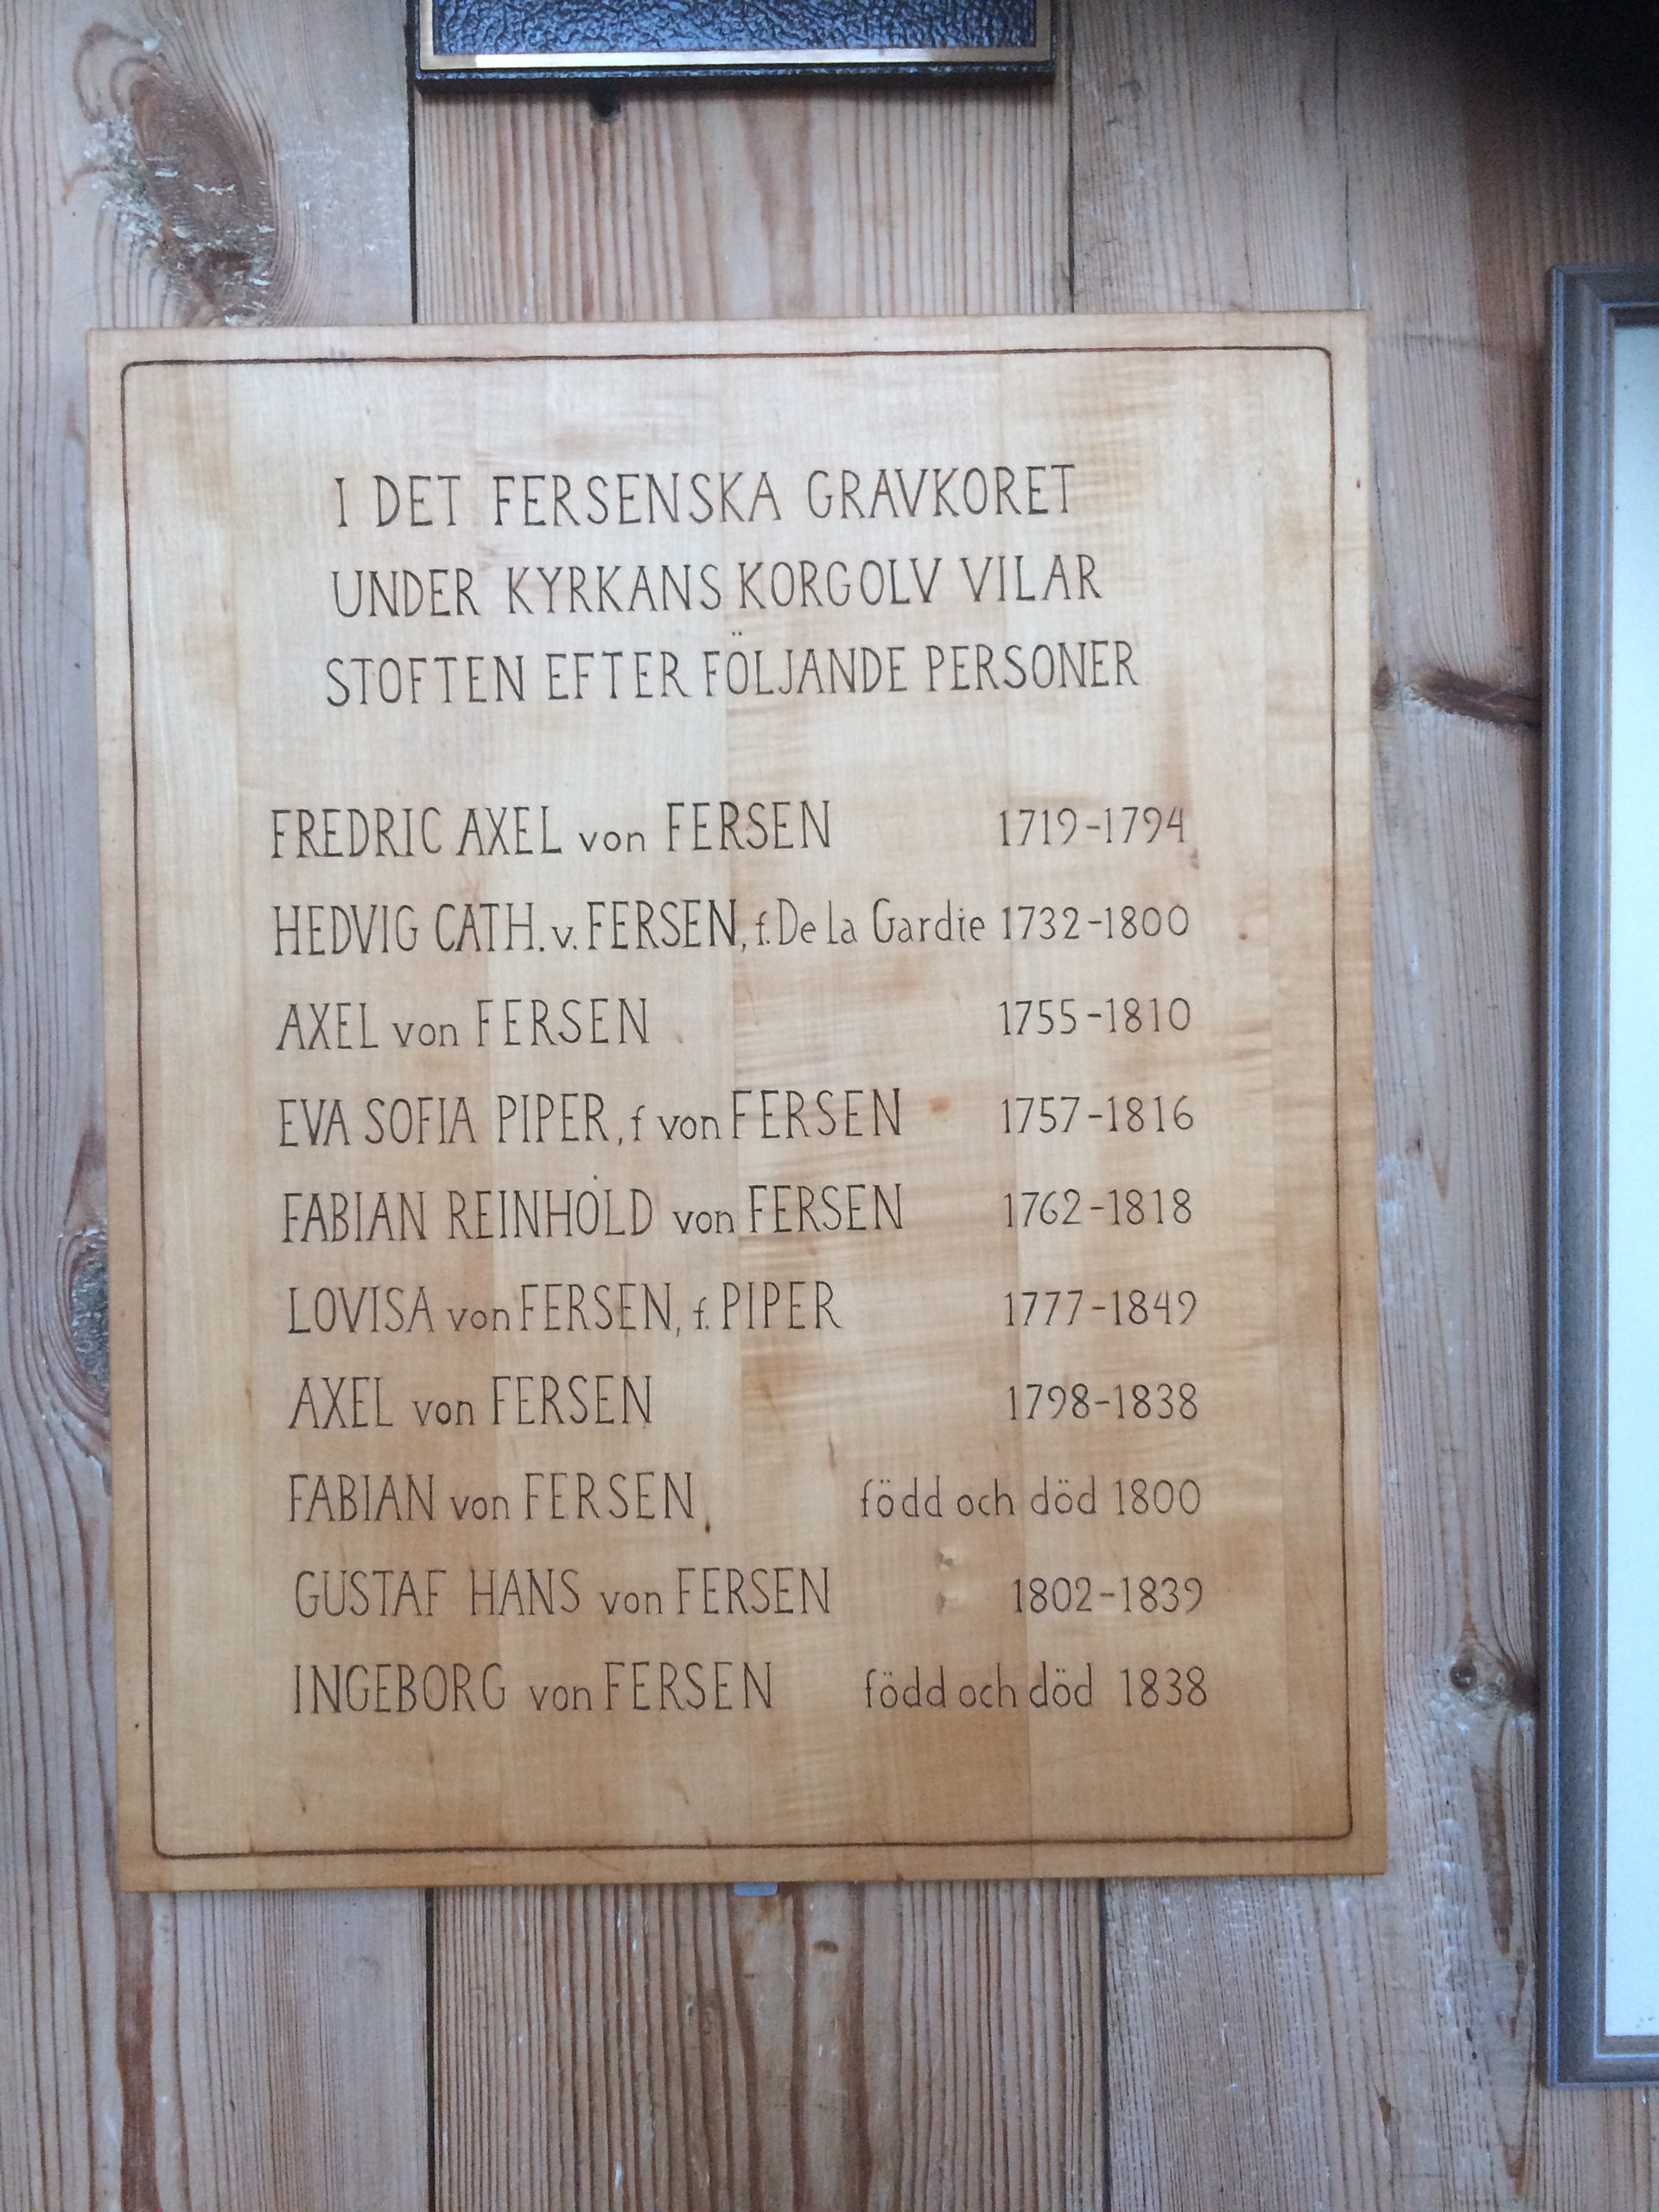 I DET FERSENSKA GRAVKORET
UNDER KYRKANS KORGOLV VILAR
STOFTEN EFTER FÖLJANDE PERSONER
FREDRIC AXEL von FERSEN 1719-1794
HEDVIG CATH. v. FERSEN, f. De la Gardie 1732-1800
AXEL von FERSEN 1755-1810
EVA SOFIA PIPER, f von FERSEN 1757-1816
FABIAN REINHOLD von FERSEN 1762-1818
LOVISA von FERSEN, f. PIPER 1777-1849
AXEL von FERSEN 1798-1838
FABIAN von FERSEN född och död 1800
GUSTAF HANS von FERSEN 1802-1839
INGEBORG von FERSEN född och död 1838